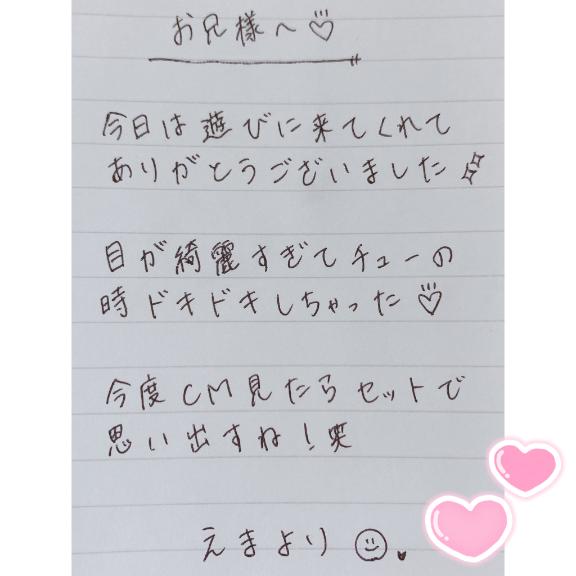 お兄様へ♡
今日は遊びに来てくれて
ありがとうございました
目が綺麗すぎてチューの
時ドキドキしちゃった♡
今度CM見たらセットで
思い出すね！笑
えまより